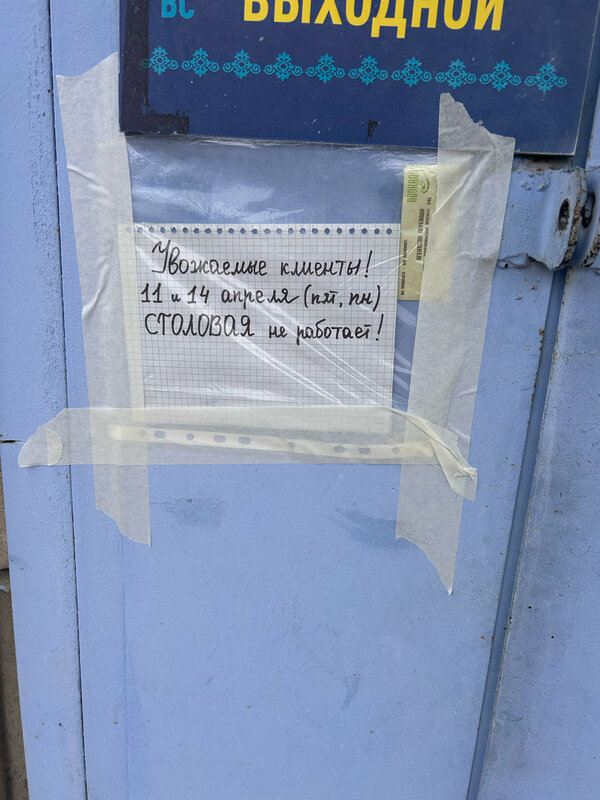 ВС ВЫХОДНОЙ
Уважаемые клиенты!
11 и 14 апреля (пт, пн)
СТОЛОВАЯ не работает!